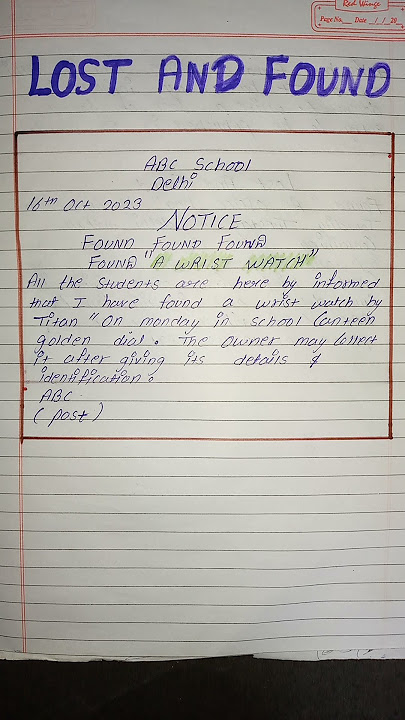 Red Wings
Page No. Date / / 20
LOST AND FOUND
ABC School
Delhi
16th Oct 2023
NOTICE
FOUND FOUND FOUND
FOUND "A WRIST WATCH"
All the students are here by informed
that I have found a wrist watch by
Titan" On monday in school Canteen
golden dial. The owner may Collect
it after giving its details &
identification.
ABC
(post)